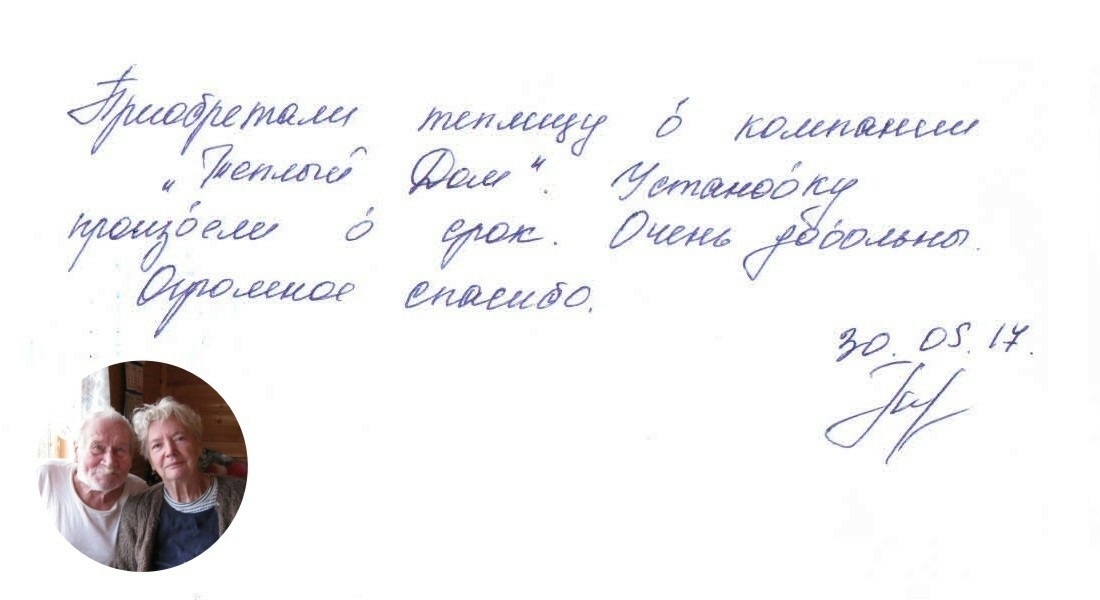 Приобретали теплицу в компании
"Теплый Дом". Установку
произвели в срок. Очень довольны.
Огромное спасибо.
30.05.17.